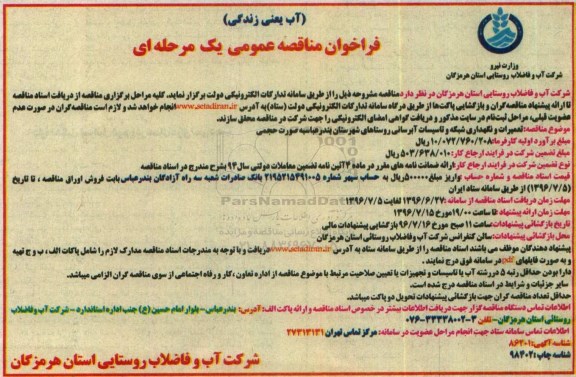 (آب یعنی زندگی)
فراخوان مناقصه عمومی یک مرحله ای
وزارت نیرو
شرکت آب و فاضلاب روستایی استان هرمزگان
شرکت آب و فاضلاب روستایی استان هرمزگان در نظر دارد مناقصه مشروحه ذیل را از طریق سامانه تدارکات الکترونیکی دولت برگزار نماید. کلیه مراحل برگزاری مناقصه از دریافت اسناد مناقصه
تا ارائه پیشنهاد مناقصه گران و بازگشایی پاکت ها از طریق درگاه سامانه تدارکات الکترونیکی دولت (ستاد) به آدرس www.setadiran.ir انجام خواهد شد و لازم است مناقصه گران در صورت عدم
عضویت قبلی، مراحل ثبت نام در سایت مذکور و دریافت گواهی امضای الکترونیکی را جهت شرکت در مناقصه محقق سازند.
موضوع مناقصه: تعمیرات و نگهداری شبکه و تاسیسات آبرسانی روستاهای شهرستان بندرعباس به صورت حجمی
مبلغ برآورد اولیه کارفرما: ۱۰/۰۷۲/۷۶۰/۲۰۸ ریال
مبلغ تضمین شرکت در فرایند ارجاع کار: ۵۰۳/۶۳۸/۰۱۰ ریال
نوع تضمین شرکت در فرایند ارجاع کار: ارائه ضمانت نامه های مقرر در ماده ۴ آئین نامه تضمین معاملات دولتی سال ۹۴ بشرح مندرج در اسناد مناقصه
قیمت اسناد مناقصه و شماره حساب واریز مبلغ ۵۰۰۰۰۰ ریال به حساب سپهر شماره ۲۱۹۵۲۱۵۴۹۱۰۰۵ بانک صادرات شعبه سه راه آزادگان بندرعباس بابت فروش اوراق مناقصه، تا تاریخ
(۱۳۹۶/۷/۵) از طریق سامانه ستاد ایران
مهلت زمان دریافت اسناد مناقصه از سامانه: ۱۳۹۶/۶/۲۷ لغایت ۱۳۹۶/۷/۵
مهلت زمان ارائه پیشنهاد تا ساعت ۱۹/۰۰ مورخ ۱۳۹۶/۷/۱۵
تاریخ بازگشائی پیشنهادات: ساعت ۱۱ صبح مورخ ۹۶/۷/۱۶ بازگشایی پیشنهادات مالی
محل بازگشائی پیشنهادات: سالن کنفرانس شرکت آب و فاضلاب روستائی استان هرمزگان
پیشنهاد دهندگان موظف می باشند اسناد مناقصه را از طریق سامانه ستاد به آدرس www.setadiran.ir دریافت و با توجه به مندرجات اسناد مناقصه مدارک لازم را شامل پاکات الف، ب و ج تهیه
و به صورت فایلهای pdf در سامانه فوق درج نمایند.
دارا بودن حداقل رتبه ۵ در رشته آب یا تاسیسات و تجهیزات یا تعیین صلاحیت مرتبط با موضوع مناقصه از اداره تعاون، کار و رفاه اجتماعی از سوی مناقصه گران الزامی میباشد.
سایر جزئیات و شرایط در اسناد مناقصه درج شده است.
حداقل تعداد مناقصه گران جهت بازگشائی پیشنهادات تحویل دو پاکت میباشد.
اطلاعات تماس دستگاه مناقصه گزار جهت دریافت اطلاعات بیشتر در خصوص اسناد مناقصه و ارائه پاکت الف: آدرس: بندرعباس- بلوار امام حسین (ع) جنب اداره استاندارد - شرکت آب و فاضلاب
روستائی استان هرمزگان - تلفن ۳-۳۳۳۳۸۰۰۲-۰۷۶
اطلاعات تماس سامانه ستاد جهت انجام مراحل عضویت در سامانه: مرکز تماس تهران ۲۷۳۱۳۱۳۱
شناسه آگهی: ۸۶۲۰۱
شناسه چاپ: ۹۸۴۰۲
شرکت آب و فاضلاب روستایی استان هرمزگان